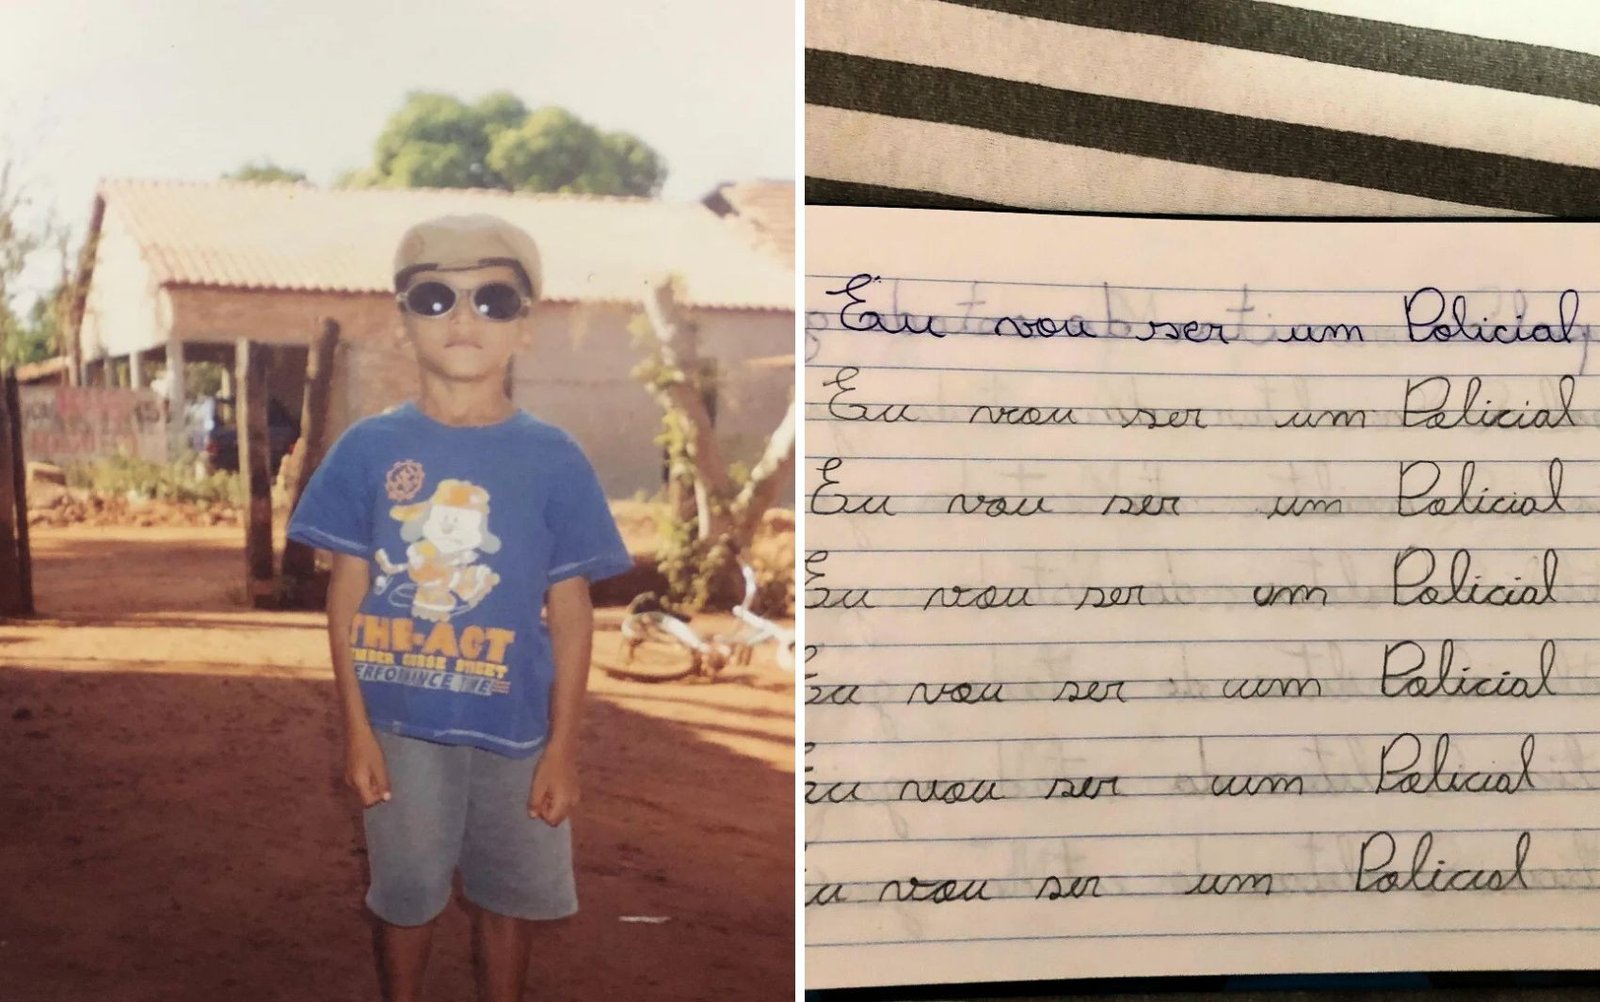 THE-ACT
PERFORMANCE THE
Eu vou ser um Policial
Eu vou ser um Policial
Eu vou ser um Policial
Eu vou ser um Policial
Eu vou ser um Policial
Eu vou ser um Policial
Eu vou ser um Policial